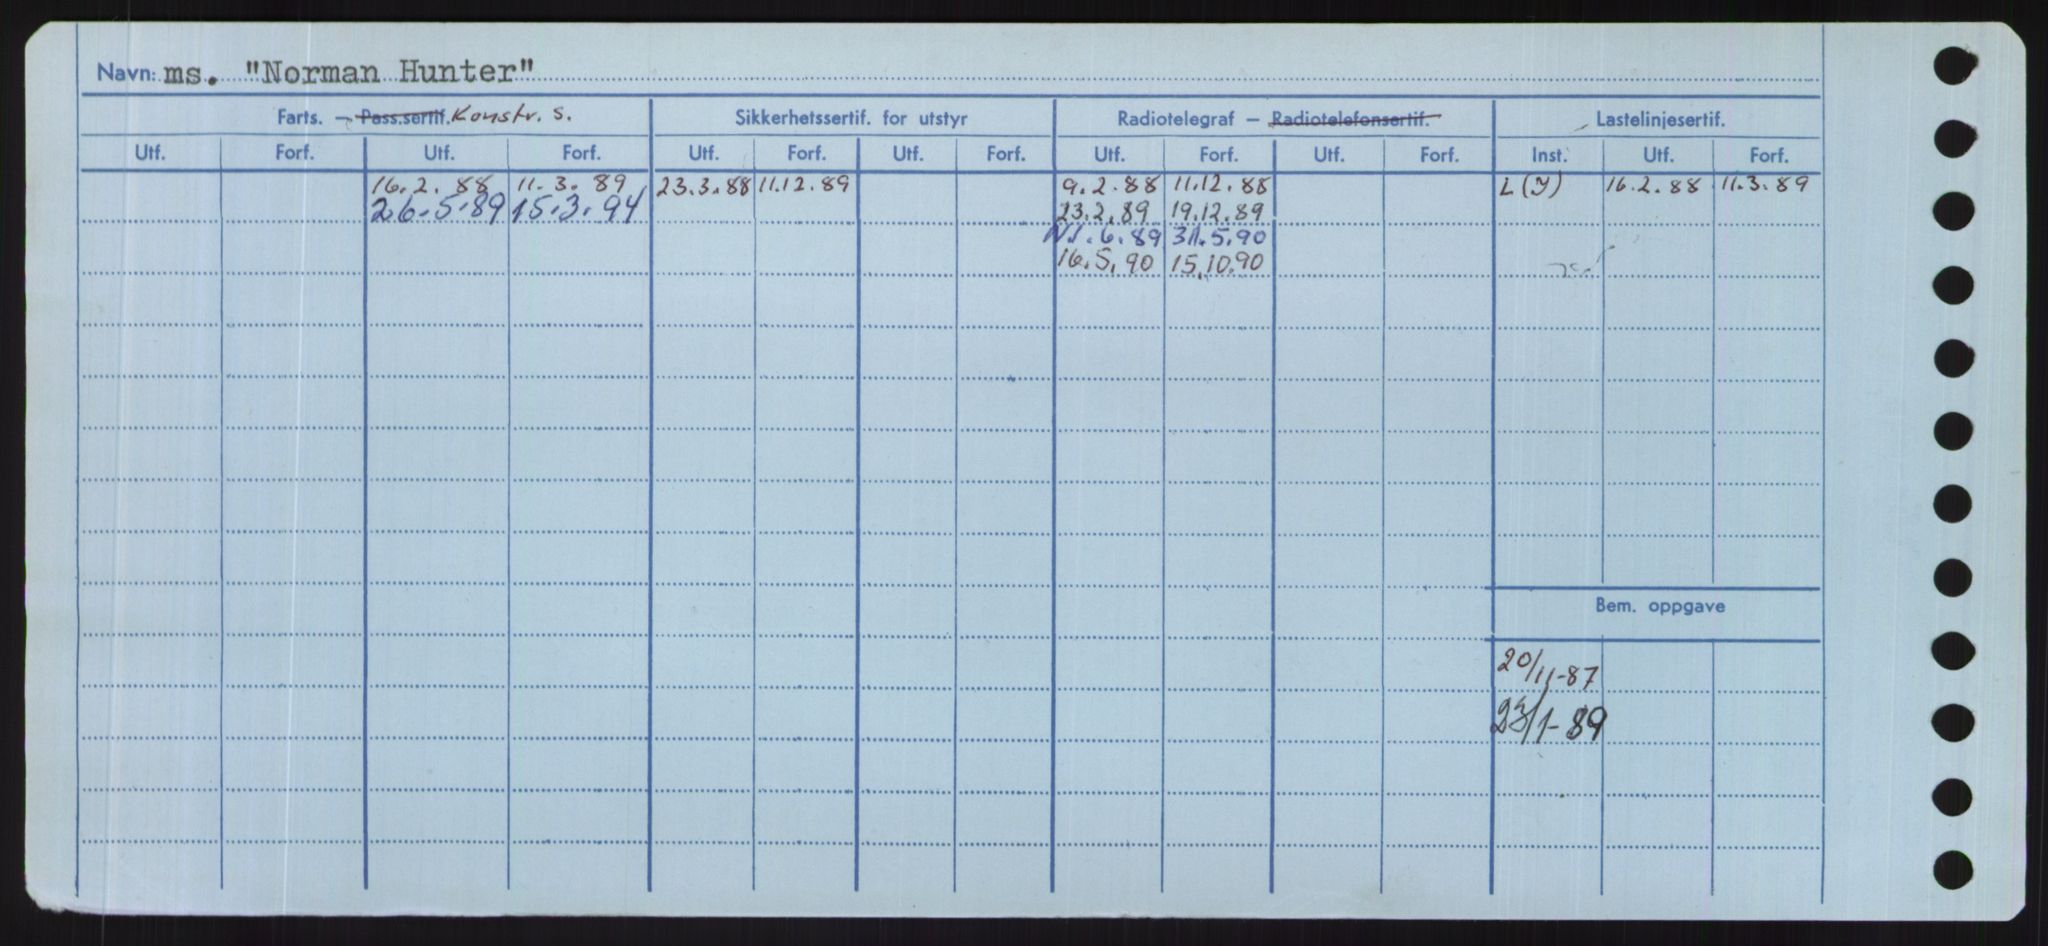 Navn: ms. "Norman Hunter"
Farts. – Pass.sertif. Konstr. s. Sikkerhetssertif. for utstyr Radiotelegraf – Radiotelefonsertif. Lastelinjesertif.
Utf. Forf. Utf. Forf. Utf. Forf. Utf. Forf. Utf. Forf. Utf. Forf. Inst. Utf. Forf.
16.2.88 11.3.89 23.3.88 11.12.89 9.2.88 11.12.88 L(Y) 16.2.88 11.3.89
26.5.89 15.3.94 23.2.89 19.12.89
1.6.89 31.5.90
16.5.90 15.10.90
Bem. oppgave
20/11-87
23/1-89